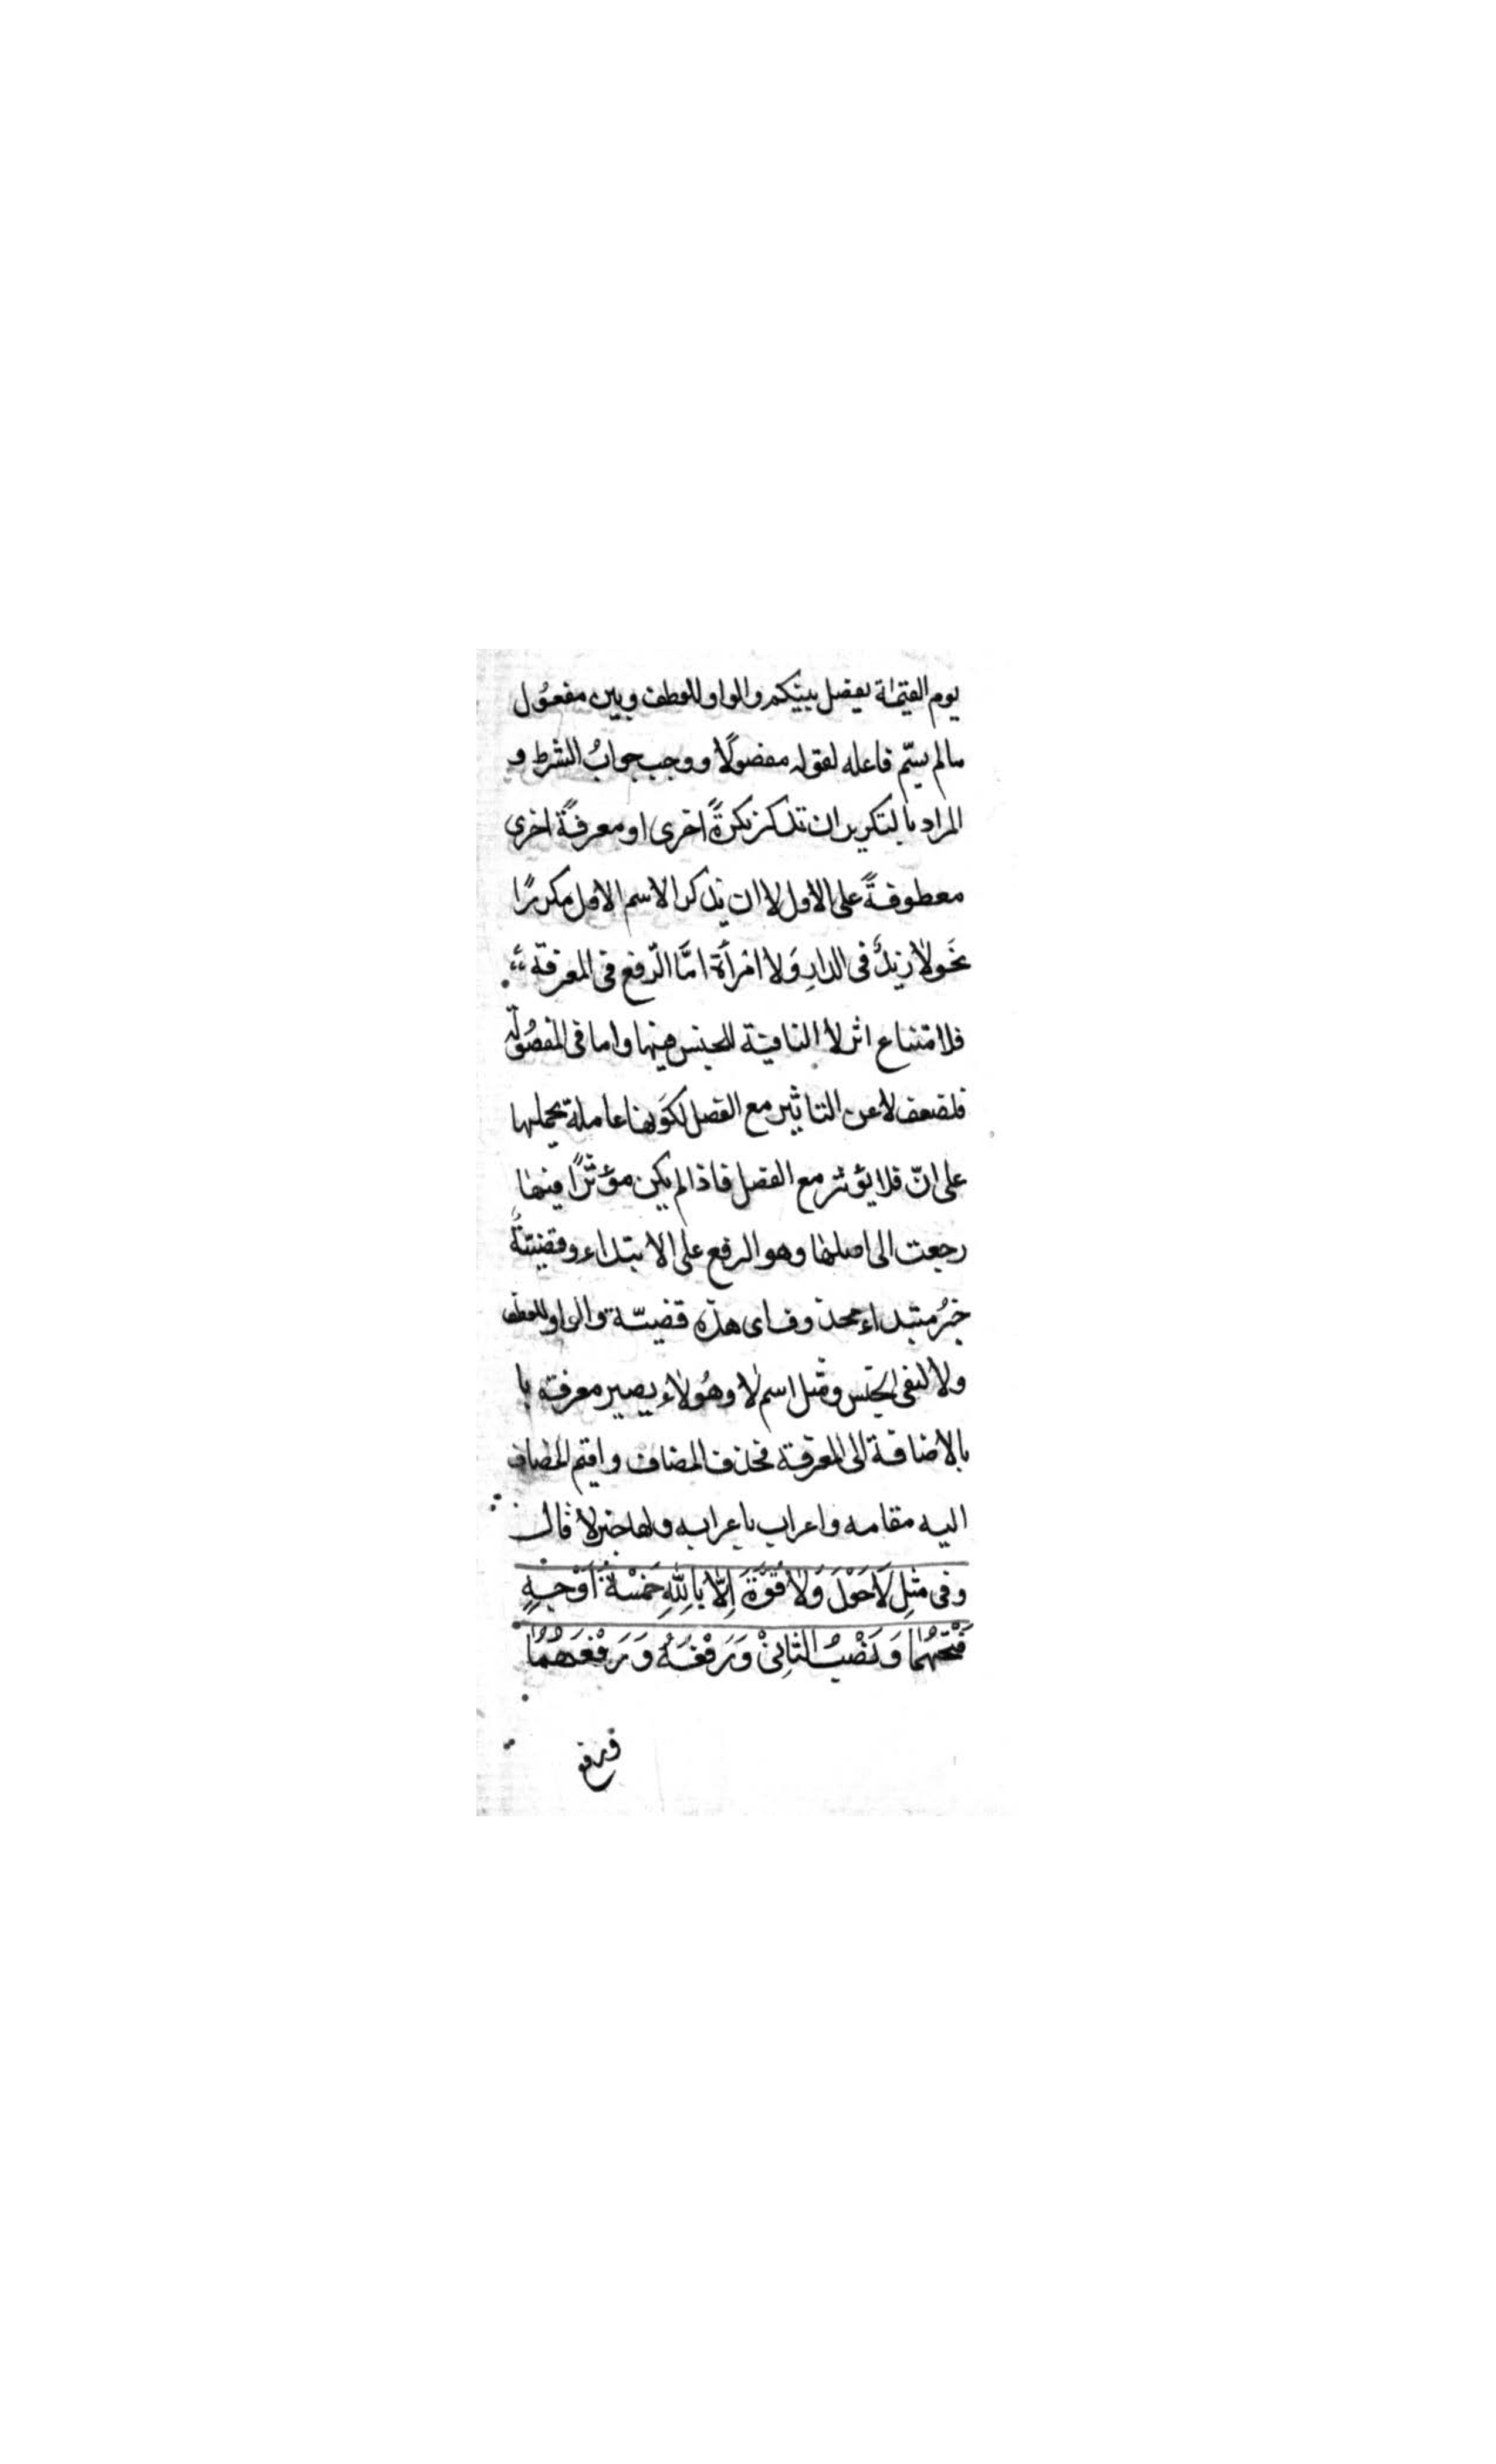 يوم القيمة يفصل بينكم والواو للعطف وبين مفعُول
مالم يسمّ فاعله لقوله مفصولًا ووجب جوابُ الشرط و
المراد بالتكرير ان تذكر نكرةً اخرى او معرفةً اخرى
معطوفةً على الاول لا ان يذكر الاسم الاول مكررًا
نحَو لا زيدٌ فى الدارِ وَلا امْرأَة امَّا الرّفع فى المعرفة
فلامتناع اثر لا النافية للجنس فيها واما فى المفصُولة
فلضعف لا عن التاثير مع الفصل لكَونها عاملة بحملها
على انّ فلا يؤثر مع الفصل فاذا لم يكن مؤثرًا فيها
رجعت الى اصلها وهو الرفع على الابتداء وقضيّةٌ
خبرُ مبتداء محذوف اى هذه قضيّة والواو للعطف
ولا لنفى الجنس ومثل اسم لا وهُولاء يصير معرفة با
بالاضافة الى المعرفة فحذف المضاف واقيم المضاف
اليه مقامه واعراب باعرابه ولها خبر لا قال
وفى مثلِ لَاحَوْلَ وَلَا قُوَّةَ اِلّا بِاللّٰهِ خَمْسَةُ اَوْجُهٍ
فَتْحُهُمَا وَنَصْبُ الثانِىْ وَرَفْعُهُ وَرَفْعُهُمَا